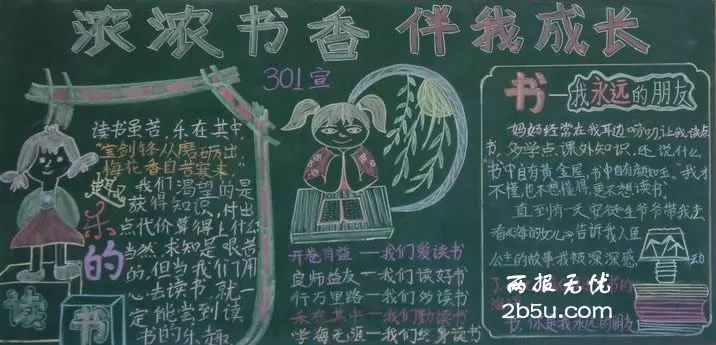 浓浓书香 伴我成长
301宣
读书虽苦,乐在其中
"宝剑锋从磨砺出,
梅花香自苦寒来"
我们渴望的是
获得知识,付出
点代价算得上什么
当然,求知是艰苦
的,但当我们用
心去读书,就一
定能尝到读
书的乐趣
乐
的
读
书
开卷有益——我们爱读书
良师益友——我们读好书
行万里路——我们多读书
乐在其中——我们勤读书
学海无涯——我们终身读书
书——我永远的朋友
妈妈经常在我耳边叨叨,让我读点
书,多学点课外知识,还说什么
"书中自有黄金屋,书中自有颜如玉"我才
不懂也不想懂得,更不想读书
直到有一天安徒生爷爷带我去
看《海的女儿》,告诉我人鱼
公主的故事我被深深感动
了
书,你是我永远的朋友
两报无优
2b5u.com